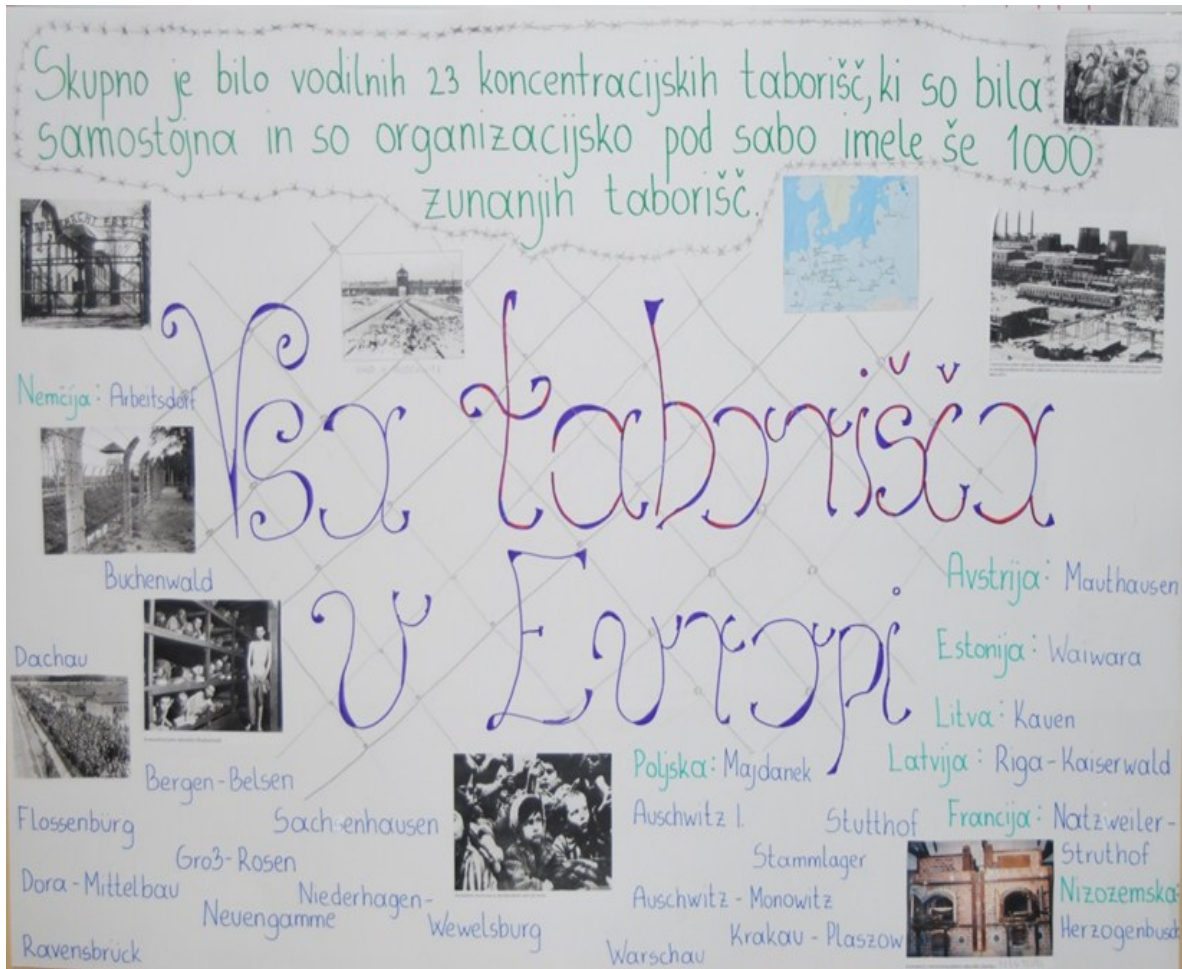 Skupno je bilo vodilnih 23 koncentracijskih taborišč, ki so bila
samostojna in so organizacijsko pod sabo imele še 1000
zunanjih taborišč.
Vsa taborišča
v Evropi
Nemčija: Arbeitsdorf
Buchenwald
Dachau
Bergen-Belsen
Flossenbürg
Sachsenhausen
Groß-Rosen
Dora-Mittelbau
Niederhagen-
Wewelsburg
Neuengamme
Ravensbrück
Poljska: Majdanek
Auschwitz I.
Stammlager
Stutthof
Auschwitz-Monowitz
Krakau-Plaszow
Warschau
Avstrija: Mauthausen
Estonija: Waiwara
Litva: Kauen
Latvija: Riga-Kaiserwald
Francija: Natzweiler-
Struthof
Nizozemska:
Herzogenbusch